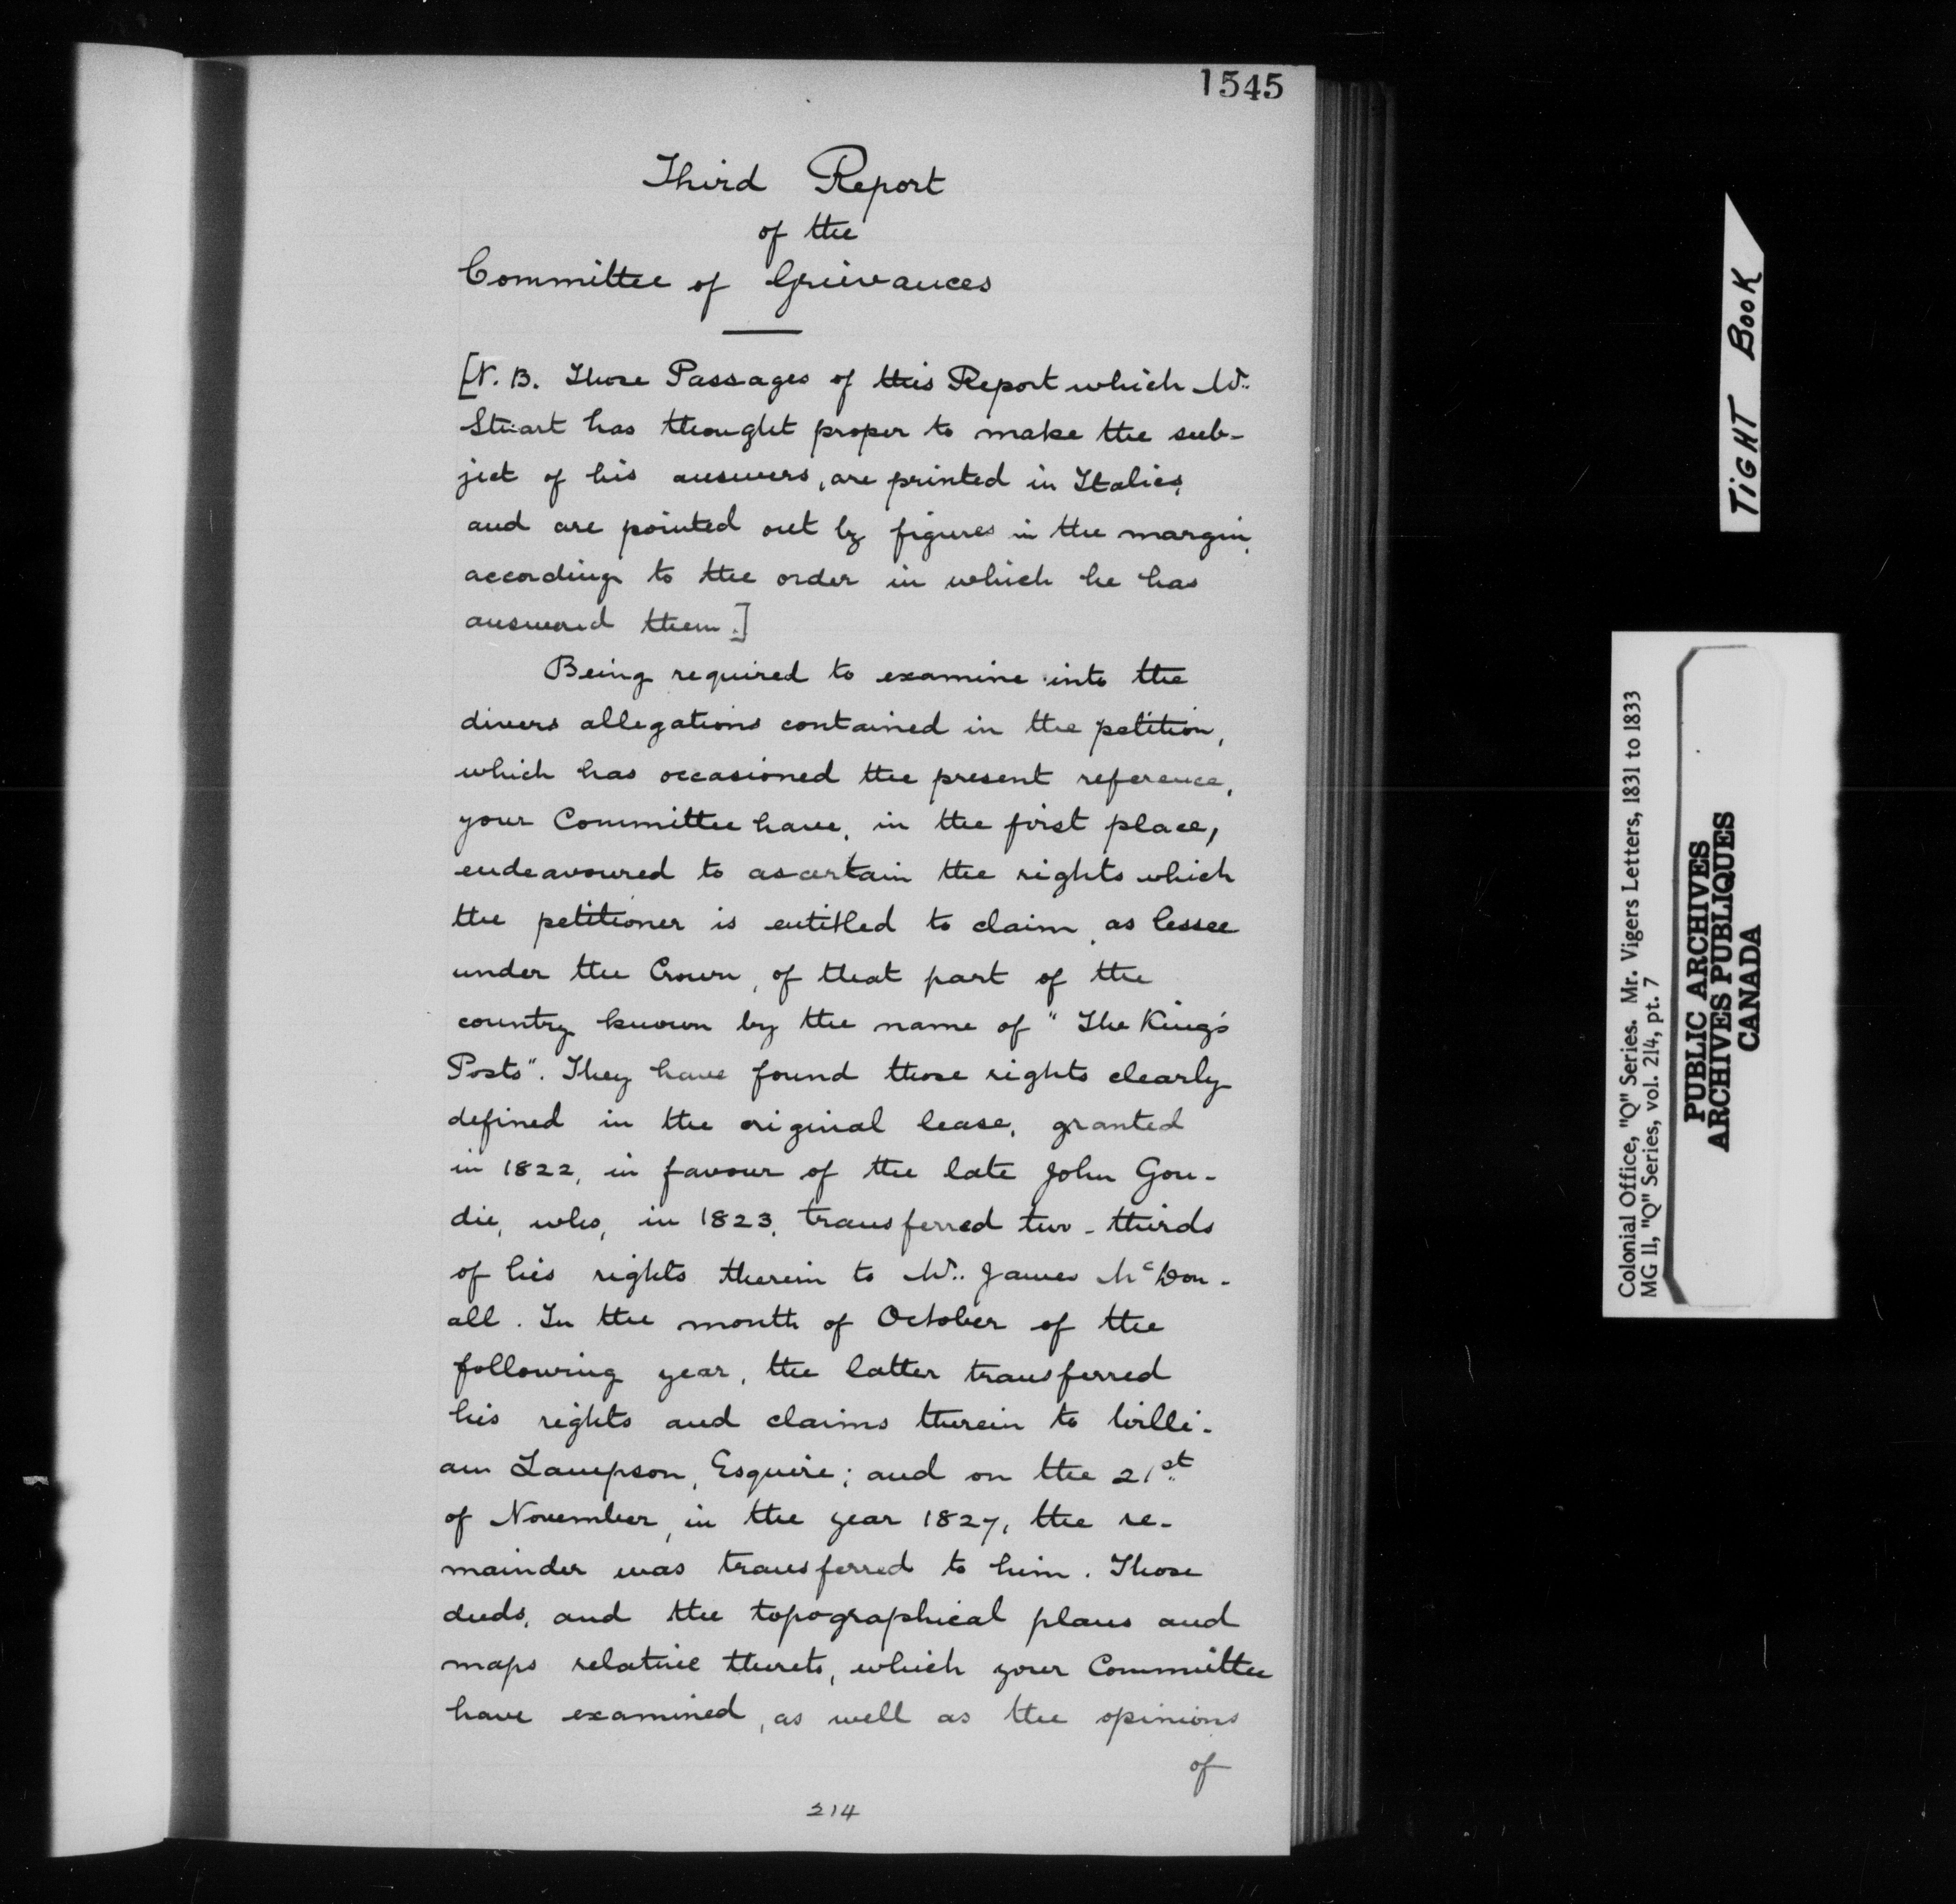 1545
Third Report
of the
Committee of Grievances
[N. B. Those Passages of this Report which Mr.
Stuart has thought proper to make the sub-
ject of his answers, are printed in Italics,
and are pointed out by figures in the margin,
according to the order in which he has
answered them.]
Being required to examine into the
divers allegations contained in the petition,
which has occasioned the present reference,
your Committee have, in the first place,
endeavoured to ascertain the rights which
the petitioner is entitled to claim, as lessee
under the Crown, of that part of the
country known by the name of "The King's
Posts". They have found those rights clearly
defined in the original lease, granted
in 1822, in favour of the late John Gou-
die, who, in 1823, transferred two-thirds
of his rights therein to Mr. James McDou-
all. In the month of October of the
following year, the latter transferred
his rights and claims therein to Willi-
am Lampson, Esquire; and on the 21st
of November, in the year 1827, the re-
mainder was transferred to him. Those
deeds, and the topographical plans and
maps relative thereto, which your Committee
have examined, as well as the opinions
of
214
TIGHT BOOK
Colonial Office, "Q" Series. Mr. Vigers Letters, 1831 to 1833
MG 11, "Q" Series, vol. 214, pt. 7
PUBLIC ARCHIVES
ARCHIVES PUBLIQUES
CANADA